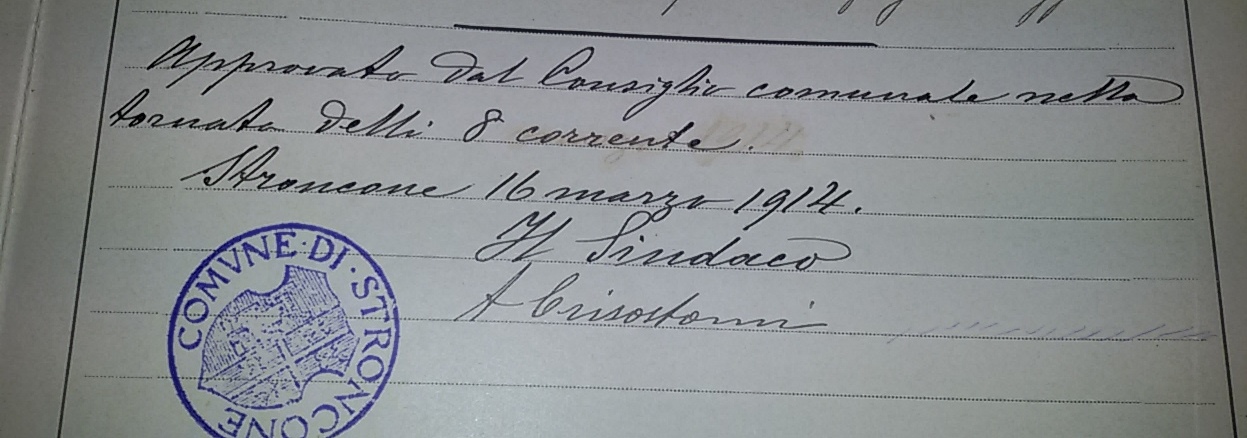 Approvato dal Consiglio comunale nella
tornata delli 8 corrente.
Stroncone 16 marzo 1914.
Il Sindaco
A Crisostomi
COMVNE·DI·STRONCONE